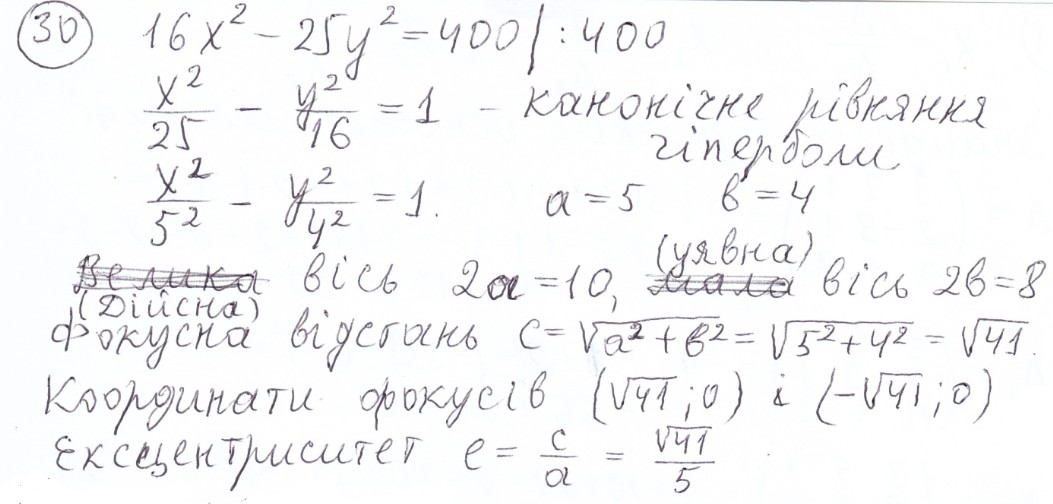 30 16x² - 25y² = 400 | : 400
x²/25 - y²/16 = 1 - канонічне рівняння
гіперболи
x²/5² - y²/4² = 1. a = 5 в = 4
Велика (Дійсна) вісь 2a = 10, мала (уявна) вісь 2в = 8
Фокусна відстань c = √(a² + в²) = √(5² + 4²) = √41.
Координати фокусів (√41; 0) і (-√41; 0)
Ексцентриситет e = c/a = √41/5